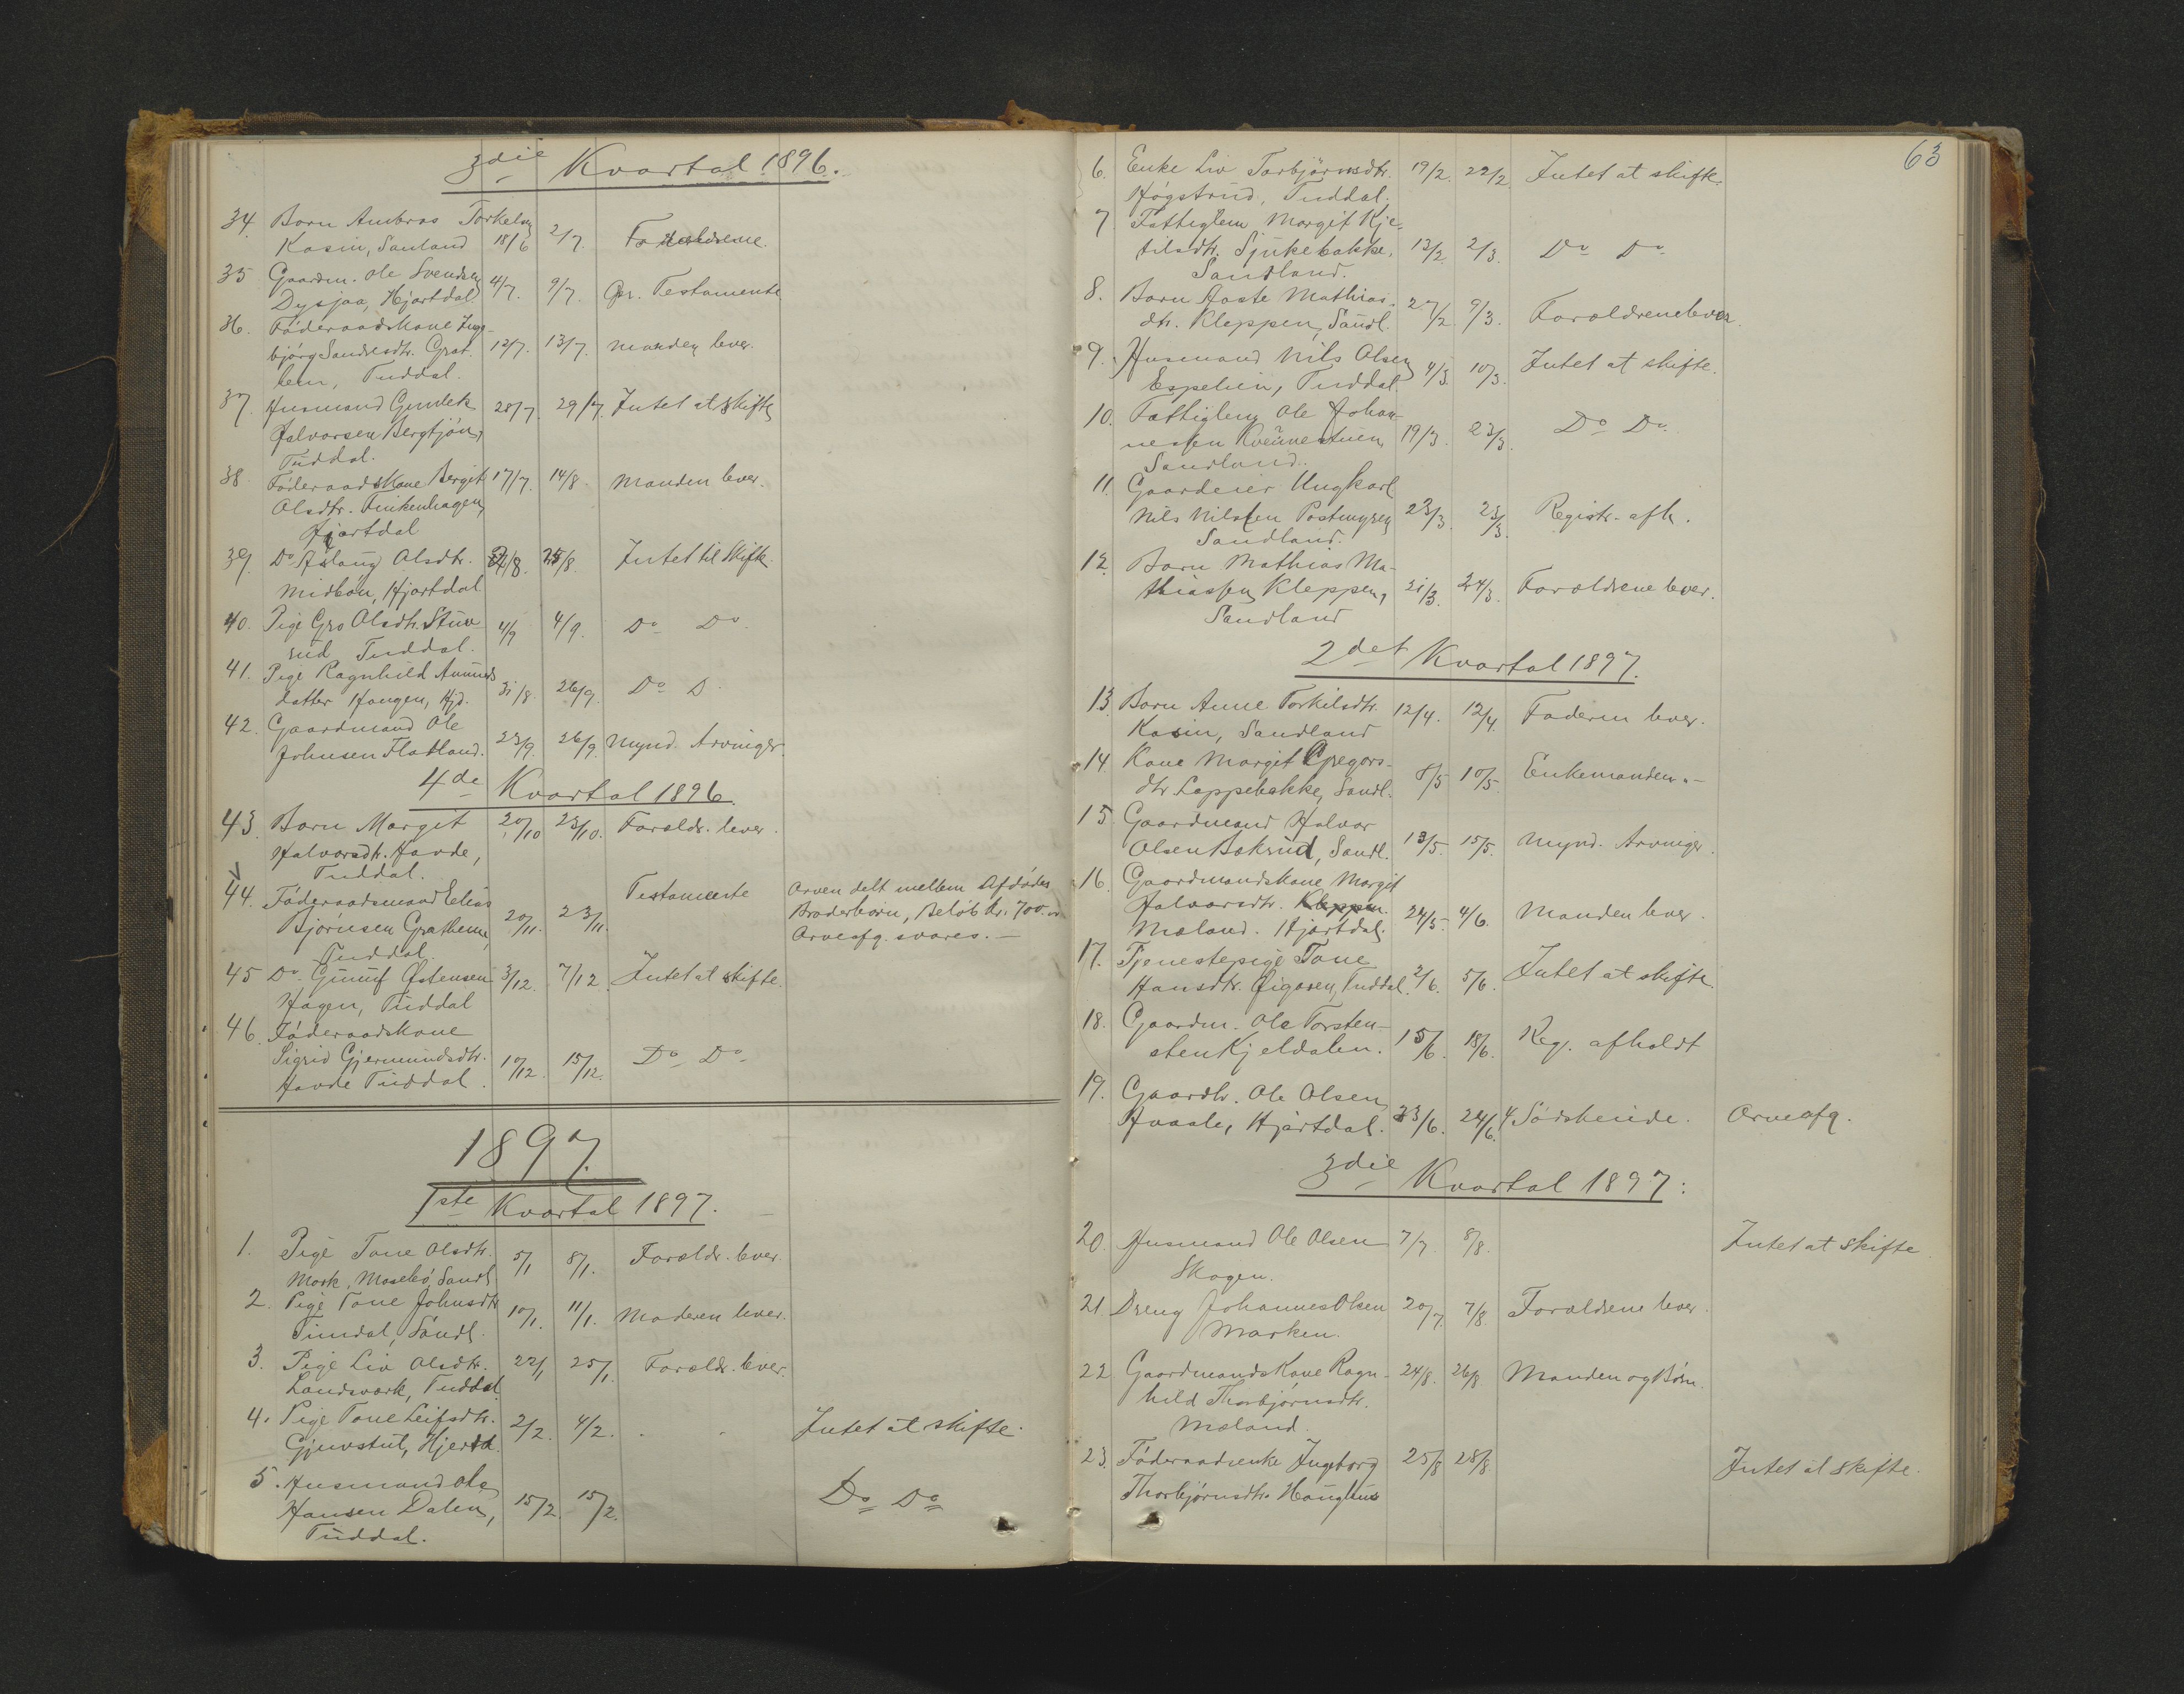 3die Kvartal 1896.
34. Barn Ambros Torkelsen
Kasin, Sauland 18/6 2/7. Foræeldrene.
35 Gaardm. Ole Svendsen
Dysjaa, Hjartdal 4/7. 9/7. Gr. Testamente
36. Föderaadskone Inge-
björg Sandresdtr. Grat- 12/7. 13/7. Manden lever.
hem, Tuddal.
37. Husmand Gunlek 28/7. 29/7. Intet at skifte
Halvorsen Bergtjön,
Tuddal.
38 Föderaadskone Bergit 17/7. 14/8 Manden lever.
Olsdtr. Finkenhagen,
Hjartdal
39. Do Aslaug Olsdtr. 24/8. 25/8. Intet til Skifte.
Midböu, Hjartdal
40. Pige Gro Olsdtr. Stuv- 4/9 4/9. Do Do
rud Tuddal.
41. Pige Ragnhild Amunds
datter Haugen, Hjd. 31/8. 26/9. Do D.
42. Gaardmand Ole
Johnsen Flatland. 23/9. 26/9. Mynd. Arvinger
4de Kvartal 1896.
43. Barn Margit 20/10 23/10. Foræeldr. lever.
Halvorsdtr. Hovde,
Tuddal.
44. Föderaadsmand Elias Testamente Arven delt mellem Afdödes
Björnsen Grathem, 20/11. 23/11. Broderbörn, Belöb kr. 700.
Tuddal. Arveafg. svares.—
45 Do Gunuf Östensen 3/12. 7/12. Intet at skifte.
Hagen, Tuddal
46. Föderaadskone
Sigrid Gjermundsdtr. 10/12. 15/12. Do Do
Hovde Tuddal.
1897.
1ste Kvartal 1897.
1. Pige Tone Olsdtr. 5/1 8/1. Forældr. lever.
Mork, Mosebö, Sandl.
2. Pige Tone Johnsdtr 10/1. 11/1. Moderen lever.
Timdal, Sandl.
3. Pige Liv Olsdtr. 22/1 25/1. Forældr. lever.
Landsverk, Tuddal
4. Pige Tone Leifsdtr. 2/2. 4/2. Intet at skifte.
Gjuvstul, Hjertd.
5. Husmand Ole
Hansen Dalen, 15/2. 15/2. Do Do
Tuddal.
63
6. Enke Liv Torbjörnsdtr. 19/2. 22/2 Intet at skifte.
Högstrud, Tuddal.
7. Fattiglem Margit Kje-
tilsdtr. Sjukebakke, 13/2. 2/3. Do Do
Sandland.
8. Barn Aaste Mathias-
dtr. Kleppen, Sandl. 27/2 9/3. Forældrene lever.
9. Husmand Nils Olsen 4/3. 10/3. Intet at skifte.
Espelien, Tuddal.
10. Fattiglem Ole Johan-
nessen Kvennestuen, 19/3. 23/3. Do Do
Sandland.
11. Gaardeier Ungkarl
Nils Nilssen Postmyren 23/3. 23/3. Registr. afh.
Sandland.
12. Barn Mathias Ma-
thiassen Kleppen, 21/3. 24/3. Forældrene lever.
Sandland
2det Kvartal 1897.
13. Barn Anne Torkilsdtr. 12/4. 12/4. Faderen lever.
Kasin, Sandland
14. Kone Margit Gregars-
dtr Loppebakke, Sandl. 8/5 10/5. Enkemanden „—
15. Gaardmand Halvor
Olsen Bakrud, Sandl. 13/5. 15/5. Mynd. Arvinger.
16. Gaardmandskone Margit
Halvorsdtr. Kleppen.
Mæland. Hjartdal. 24/5. 4/6. Manden lever.
17. Tjenestepige Tone
Hansdtr. Öigaren, Tuddal. 2/6. 5/6. Intet at skifte
18. Gaardm. Ole Torsten-
sten Kjeldalen. 15/6. 18/6. Reg. afholdt
19. Gaardbr. Ole Olsen
Hvaale, Hjartdal. 23/6. 24/6. 4 Sødskende. Arveafg.
3die Kvartal 1897:
20. Husmand Ole Olsen 7/7 8/8. Intet at skifte.
Skogen.
21. Dreng Johannes Olsen 20/7. 7/8. Forældrene lever.
Marken.
22 Gaardmandskone Ragn- 24/8. 26/8 Manden og Börn.
hild Thorbjörnsdtr.
Mæland.
23. Föderaadsenke Ingeborg 25/8 28/8. Intet at skifte.
Thorbjörnsdtr. Haughus